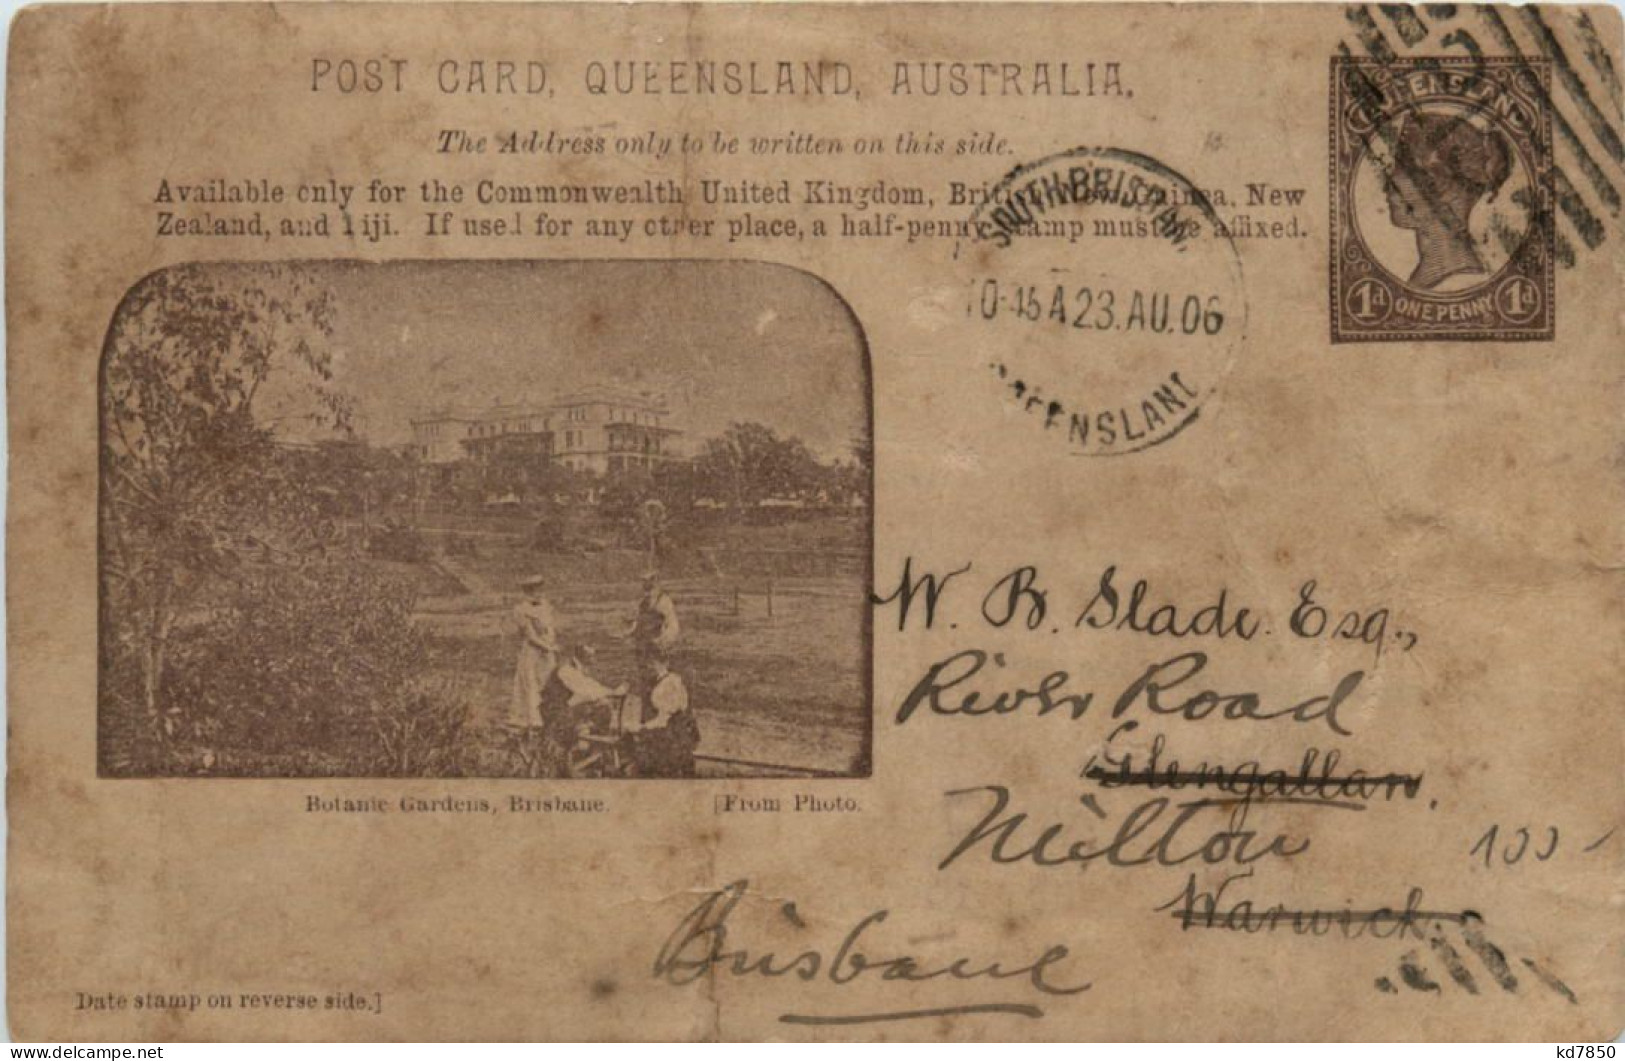 POST CARD, QUEENSLAND, AUSTRALIA.
The Address only to be written on this side.
Available only for the Commonwealth United Kingdom, British New Guinea, New
Zealand, and Fiji. If used for any other place, a half-penny stamp must be affixed.
QUEENSLAND
1d ONE PENNY 1d
SOUTH BRISBANE,
10-45 A 23. AU. 06
QUEENSLAND
W. B. Slade. Esq.,
River Road
Glengallan.
Milton
100-
Warwick.
Brisbane
Botanic Gardens, Brisbane. [From Photo.
Date stamp on reverse side.]
kd7850